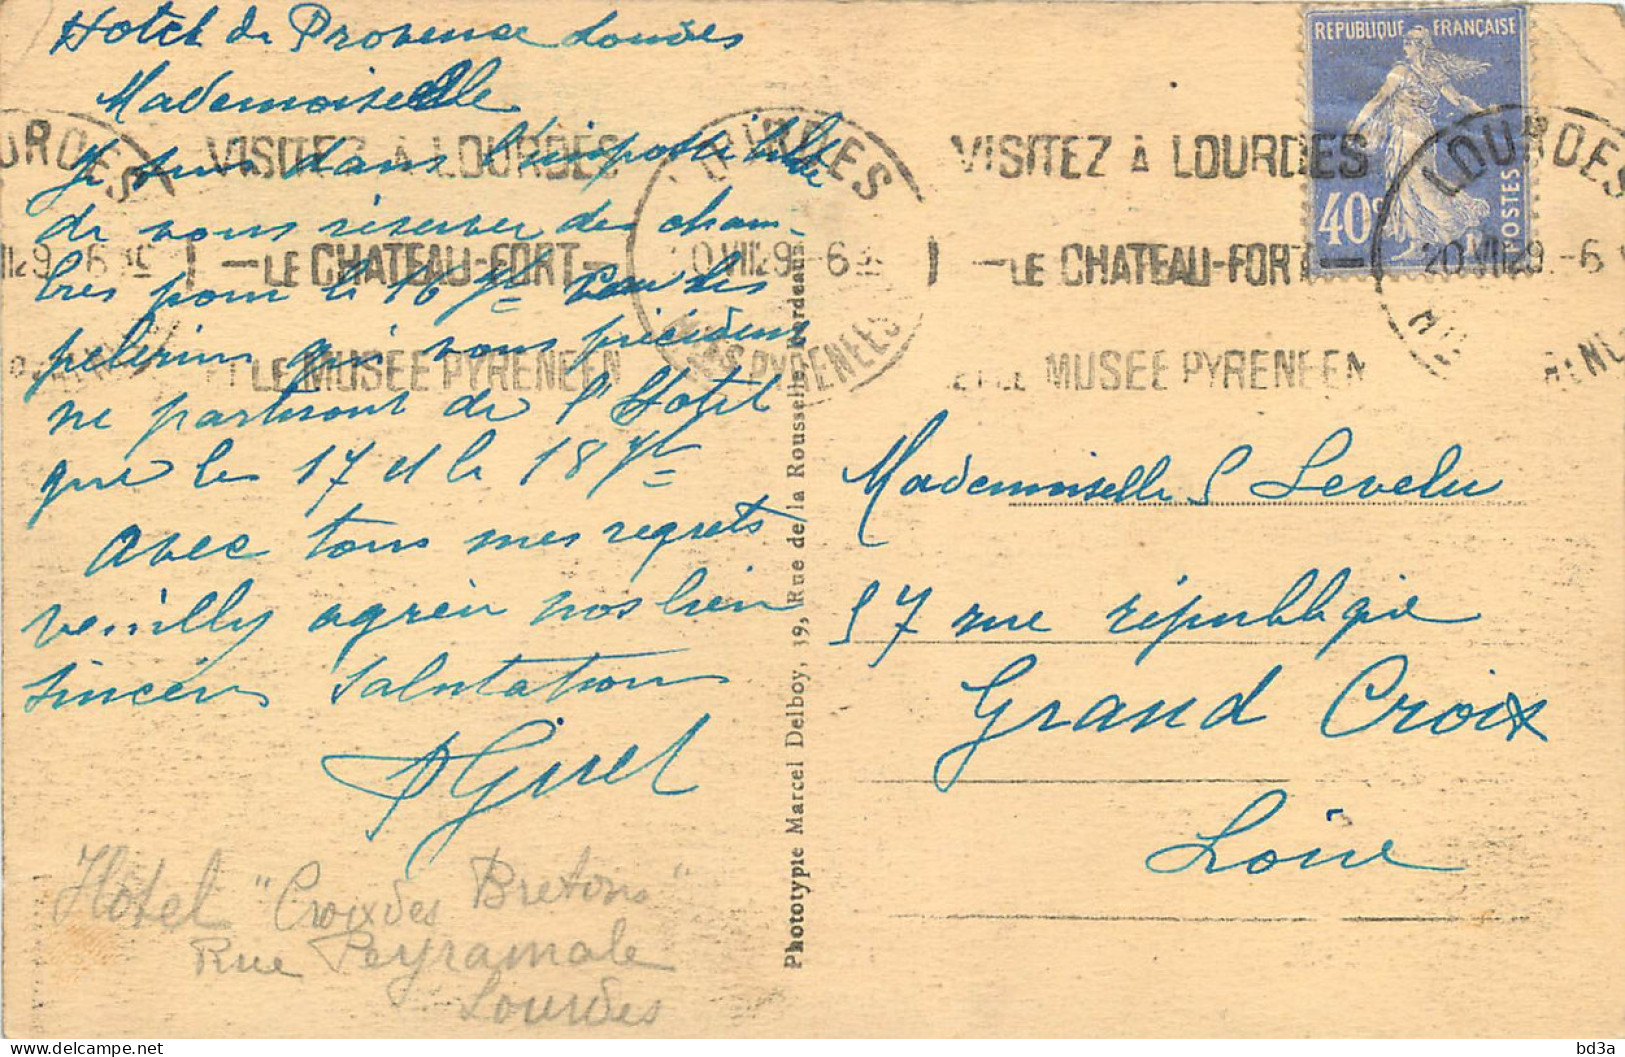 Hotel de Provence Lourdes
Mademoiselle
Je suis dans l'impossibilité
de vous réserver des cham-
bres pour le 16 7bre les
pelerins qui vous précédent
ne partiront de l'Hotel
que les 17 et le 18 7bre
Avec tous mes regrets
veuilly agréer nos bien
sincères salutations
Hôtel "Croix des Bretons"
Rue Peyramale
Lourdes
Phototypie Marcel Delboy, 39, Rue de la Rousselle, Bordeaux
REPUBLIQUE FRANÇAISE
40c
POSTES
LOURDES
VISITEZ À LOURDES
LE CHATEAU-FORT
ET LE MUSEE PYRENEEN
LOURDES
20 VII 29
Htes PYRENEES
VISITEZ À LOURDES
LE CHATEAU-FORT
ET LE MUSEE PYRENEEN
LOURDES
20 VII 29
Mademoiselle S Levelu
57 rue république
Grand Croix
Loire
bd3a